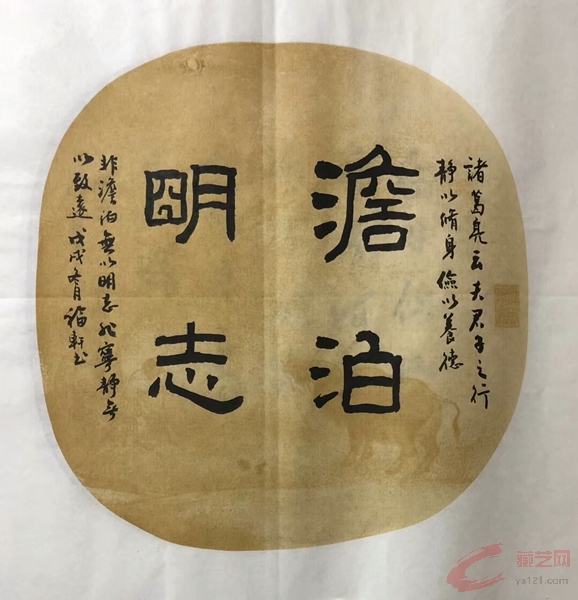 諸葛亮云夫君子之行
靜以脩身儉以養德
澹泊
明志
非澹泊無以明志非寧靜無
以致遠戊戌冬月 軒书
藏艺网
ya121.com